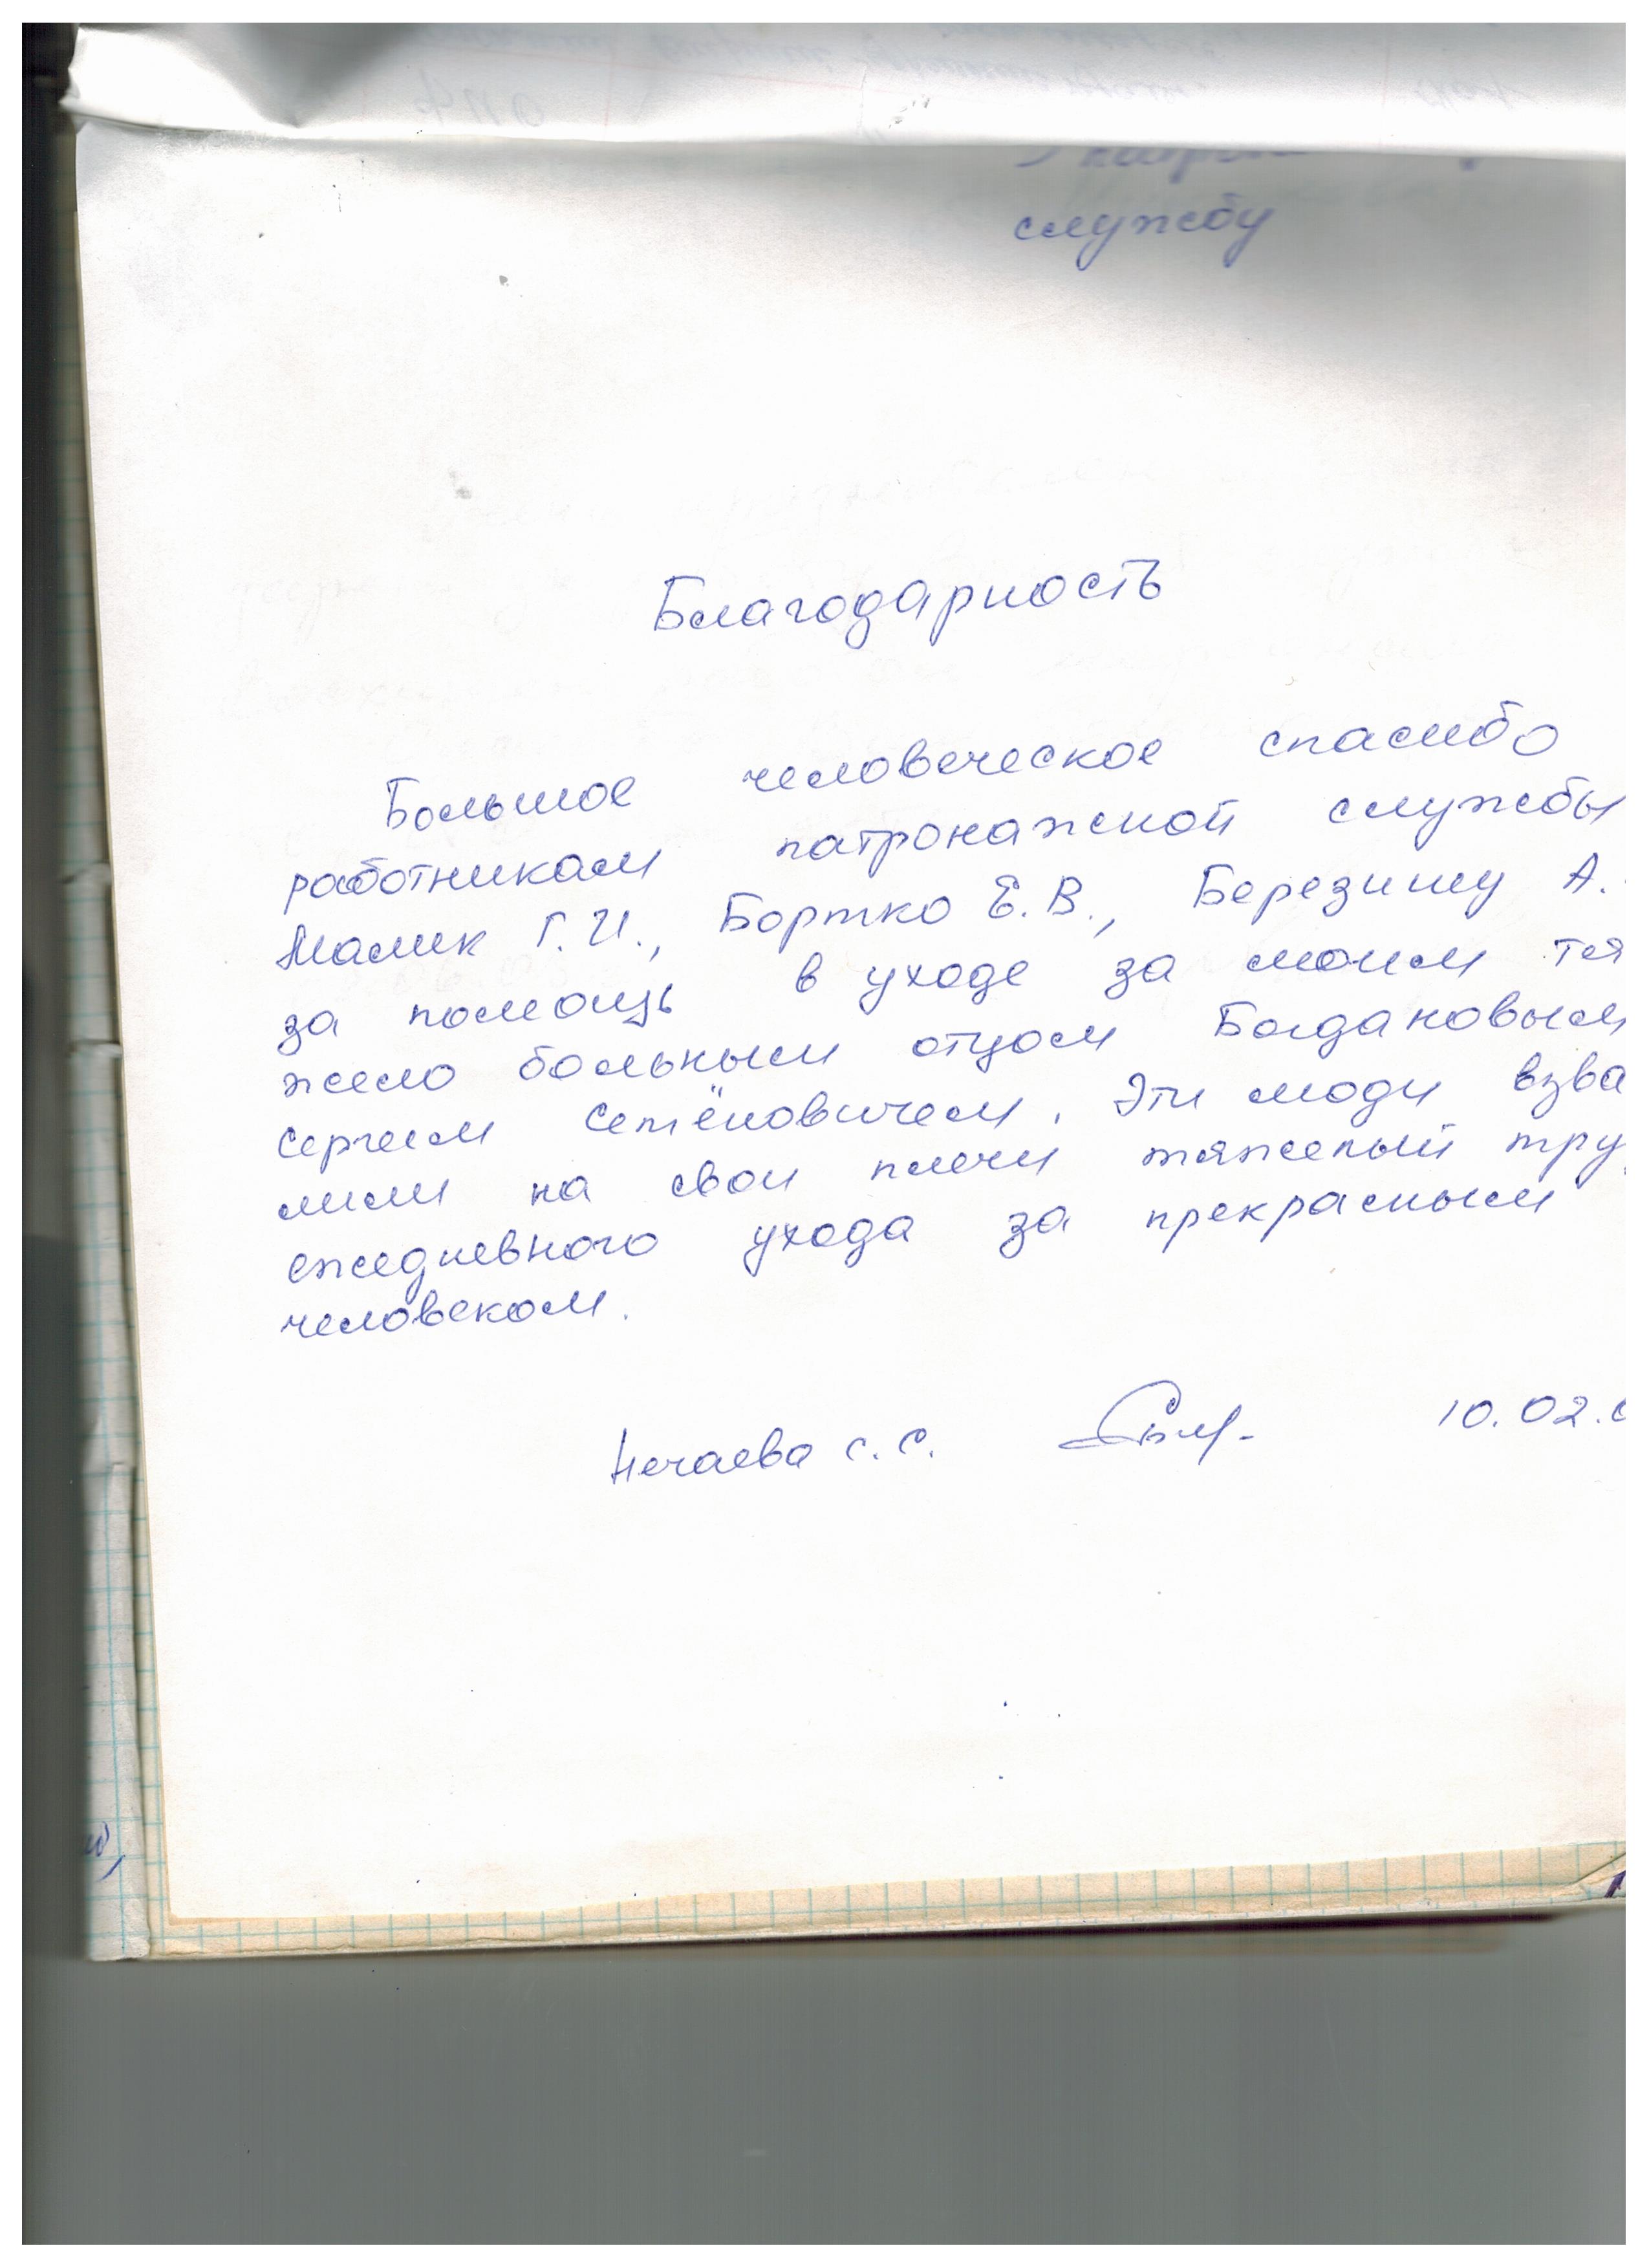 службу
Благодарность
Большое человеческое спасибо
работникам патронажной службы
Малик Г.И., Бортко Е.В., Березину А.
за помощь в уходе за моим тя
жело больным отцом Богдановым
Сергеем Семёновичем. Эти люди взва
лили на свои плечи тяжелый тру
ежедневного ухода за прекрасным
человеком.
Нечаева С.С. 10.02.